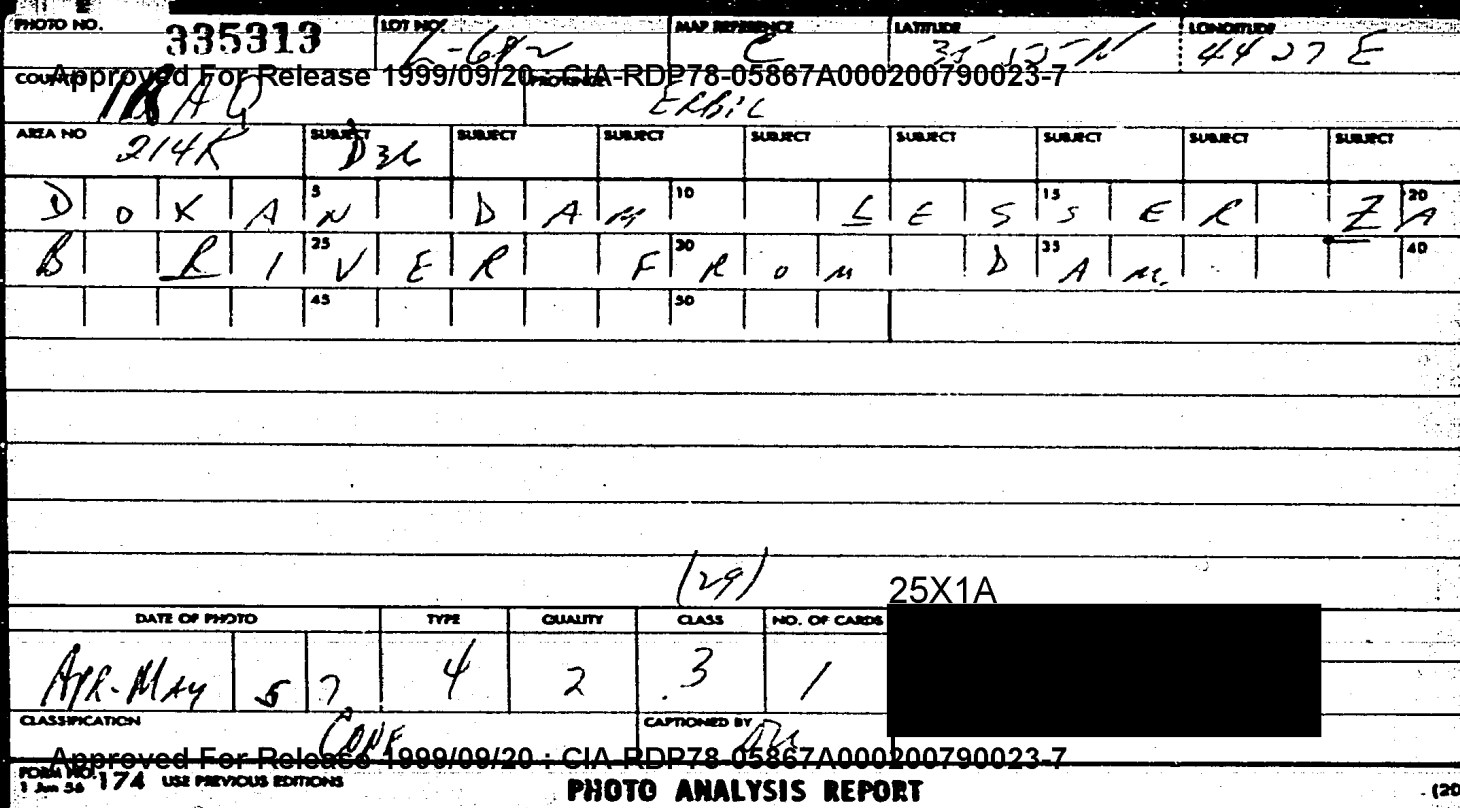 PHOTO NO. 335313 LOT NO. L-682 MAP REFERENCE C LATITUDE 35 55 N LONGITUDE 44 27 E
Approved For Release 1999/09/20 : CIA-RDP78-05867A000200790023-7
COUNTRY IRAQ PROVINCE ERBIL
AREA NO 214K SUBJECT D36 SUBJECT SUBJECT SUBJECT SUBJECT SUBJECT SUBJECT SUBJECT
DOKAN 5 DAM 10 LESSER 15 ZA 20
B RIVER 25 FROM 30 DAM. 35 40
45 50
(29)
25X1A
DATE OF PHOTO TYPE QUALITY CLASS NO. OF CARDS
APR-MAY 57 4 2 3 1
CLASSIFICATION CONF CAPTIONED BY
Approved For Release 1999/09/20 : CIA-RDP78-05867A000200790023-7
FORM NO. 174 USE PREVIOUS EDITIONS PHOTO ANALYSIS REPORT (20
1 Jun 56